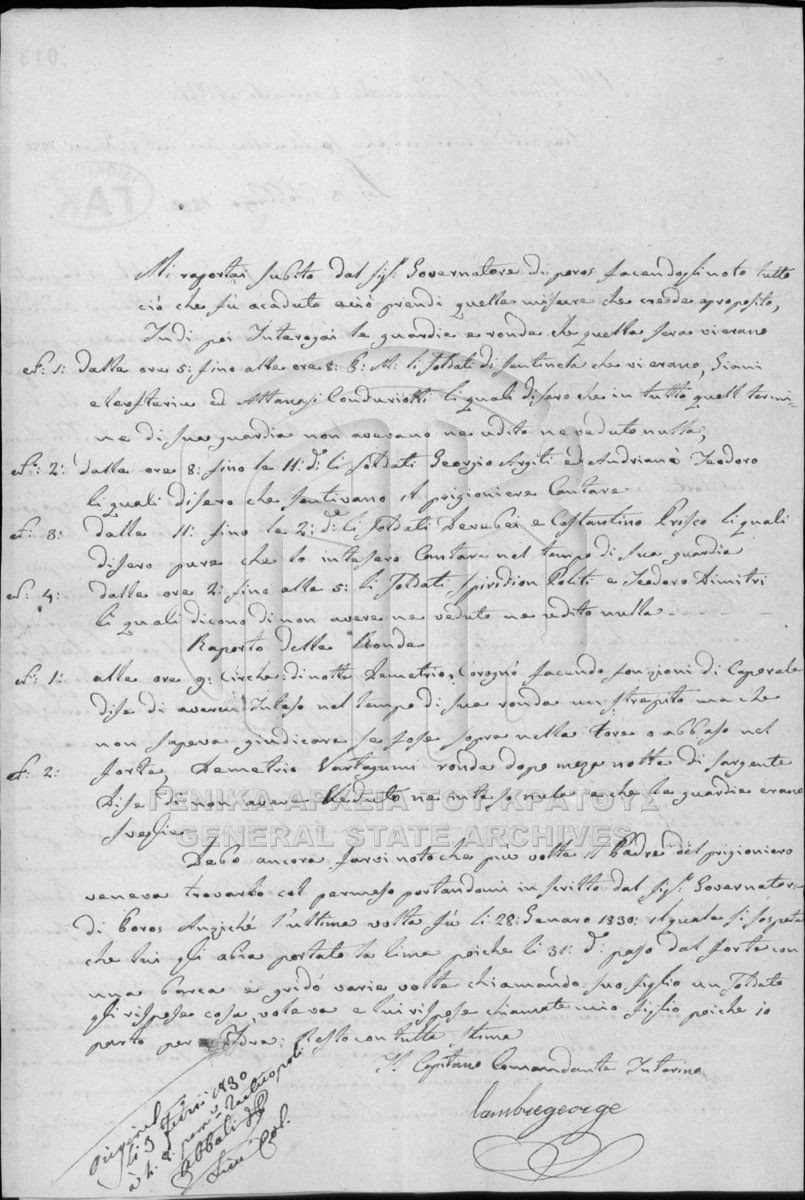 Mi raportai subito dal sigr. Governatore di poros facendogli noto tutto
ciò che fù acaduto acciò prendi quelle misure che crede aproposito,
Indi poi Interogai le guardie e ronde che quella sera vi erano
No: 1: dalle ore 5: fino alle ore 8: P: M: li soldati di sentinela che vi erano, Giani
elefteriu ed Attanasi Conduriotti li quali disero che in tutto quell termi-
ne di sua guardia non avevano ne udito ne veduto nulla,
No: 2: dalle ore 8: fino le 11: do: li soldati Georgio Argiti ed Andriano Teodoro
li quali disero che sentivano il prigioniere Cantare
No: 3: dalle 11: fino le 2: do: li soldati Dervbei e Costantino Prisco li quali
disero pure che lo intesero Cantare nel tempo di sua guardia
No: 4: dalle ore 2: fino alle 5: li soldati Spiridion Politi e Teodoro Dimitri
li quali dicono di non avere ne veduto ne udito nulla
Raporto delle Ronde
No: 1: alle ore 9: Circhè: di notte Demetrio Corognò facendo fonzioni di Caporale
dise di averci Inteso nel tempo di sua ronda un strepito ma che
non sapeva giudicare se fose sopra nella Tore o abbaso nel
No: 2: forte, Demetrio Vartagumi ronda dopo meza notte di sargente
Dise di non avere Veduto ne inteso nula e che le guardie erano
sveglie
Debo ancora farvi noto che più volte il Padre del prigioniero
veneva trovarlo col permeso portandomi in scritto dal sigr. Governatore
di Poros Anziché l'ultima volta fù li 28: Genaro 1830: il quale si sospeta
che lui gli abia portato la lima poiche li 31: do: paso dal forte con
una barca e gridò varie volte chiamando suo figlio un soldato
gli rispose cosa, voleva e lui rispose chiamate mio figlio poiche io
parto per Idra: Resto con tutta stima
Il Capitano Comandante Interino
lambregeorge
li 5 1830
ΓΑΚ
ΓΕΝΙΚΑ ΑΡΧΕΙΑ ΤΟΥ ΚΡΑΤΟΥΣ
GENERAL STATE ARCHIVES